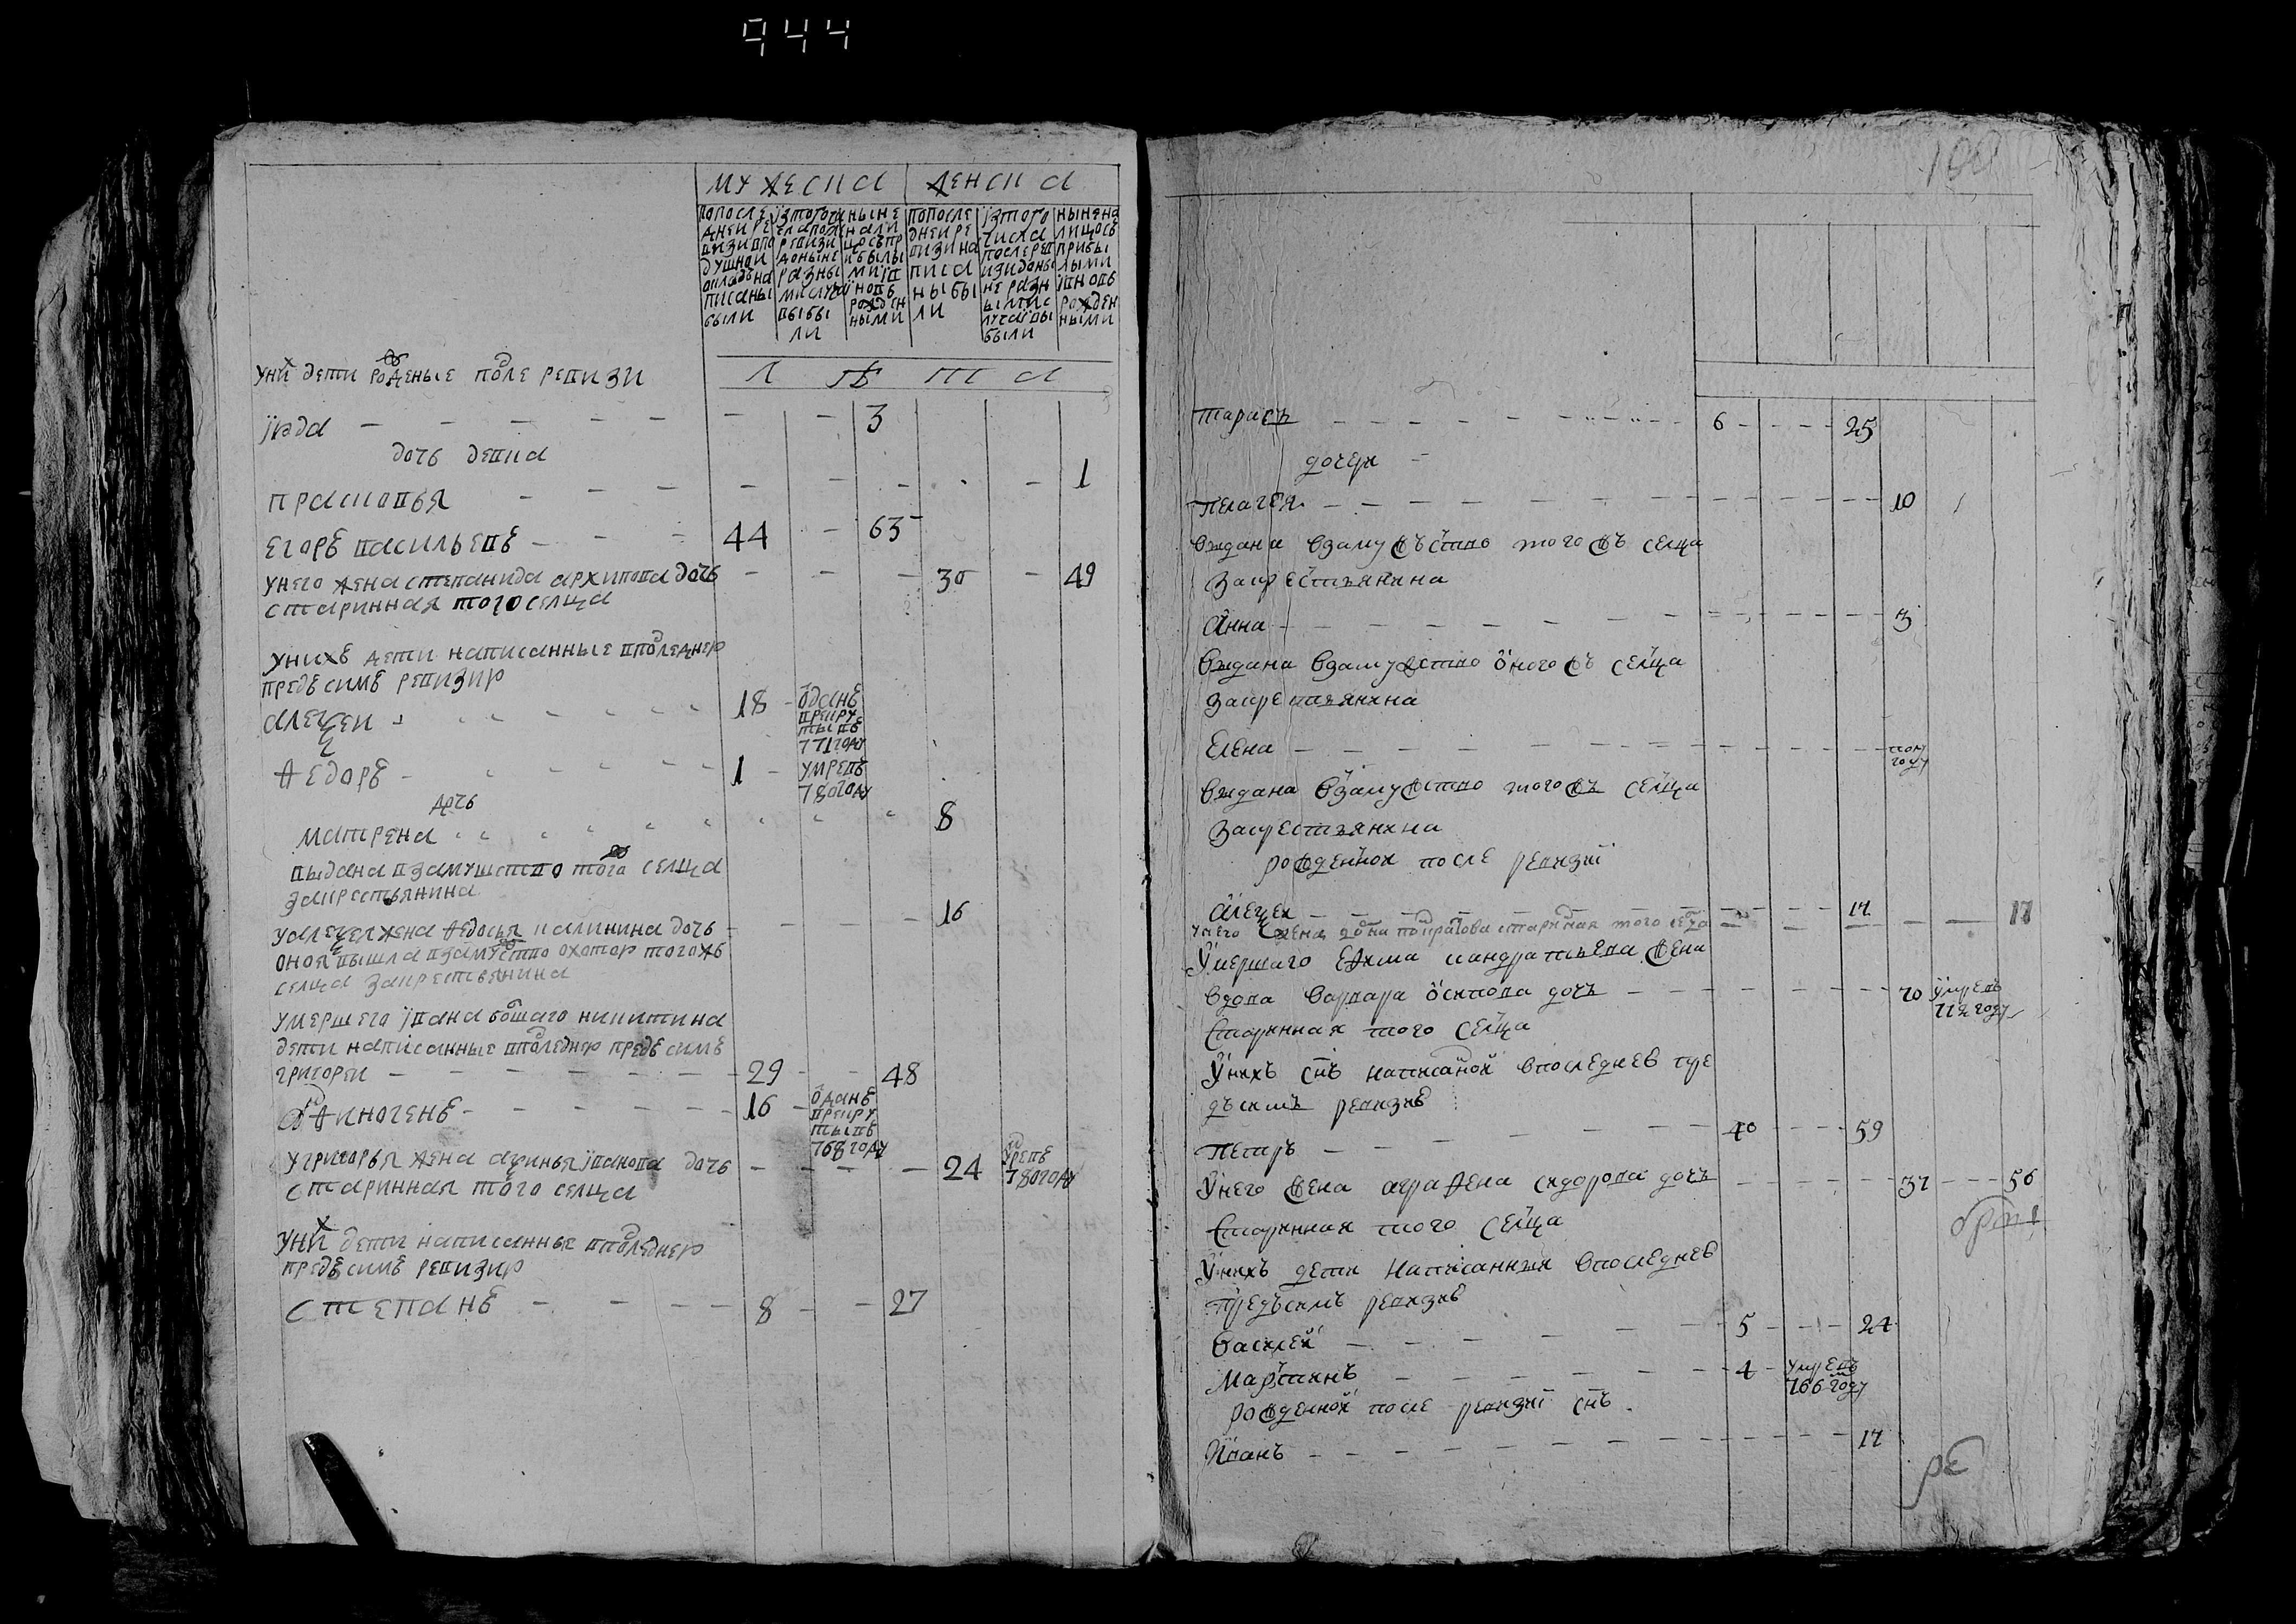 944
мужеска женска
попосле днеи ре визи впо душнои окладъ на писаны были
їзтого чи сла после ревизи доныне разны ми случаї выбы ли
ныне нали цосъпр ибылы миїв новь рожден ными
попосле днеи ре визи на писа ны бы ли
їзтого числа послерев изи доны не разн ыми с лучаї вы были
ныне на лицось прибы лыми ївновь рожден ными
уних дети рожденые после ревизи
лѣта
їюда 3
дочь девка
прасковья 1
егоръ васильевъ 44 63
унего жена степанида архипова дочь 30 49
старинная того селца
унихъ дети написанные впоследнею
предъ симъ ревизию
алексеи 18 отданъ врекру ты въ 771 году
федоръ 1 умре въ 780 году
дочь
матрена 8
выдана взамушество тогож селца
закрестьянина
уалексея жена федосья калинина дочь 16
оноя вышла взамужство охотою тогожь
селца закрестьянина
умершего ївана болшаго никитина
дети написанные впоследнею предъ симъ
григореи 29 48
афиногенъ 16 отданъ врекру ты въ 768 году
угригорья жена аксинья їванова дочь 24 умре въ 780 году
старинная того селца
уних дети написанные впоследнею
предъ симъ ревизию
степанъ 8 27
тарасъ 6 25
дочери
пелагея 10
выдана взамужъство тогожъ селца
закрестьянина
анна 3
выдана взамужство оногожъ селца
закрестьянина
елена полу году
выдана взамужство тогожъ селца
закрестьянина
рожденнои после ревизиї
алексеи 17 17
унего жена старинная того селца
умершаго ефима кандратьева жена
вдова варвара осипова дочь 70 умре въ 772 году
старинная того селца
унихъ снъ написанои впоследнеѣ пре
дъ симъ ревизиѣ
петръ 40 59
унего жена аграфена сидорова дочь 37 56
старинная того селца
унихъ дети написанныи впоследнеѣ
предъ симъ ревизиѣ
василеи 5 24
мартинъ 4 умре въ 766 году
рожденнои после ревизиї снъ
иванъ 17